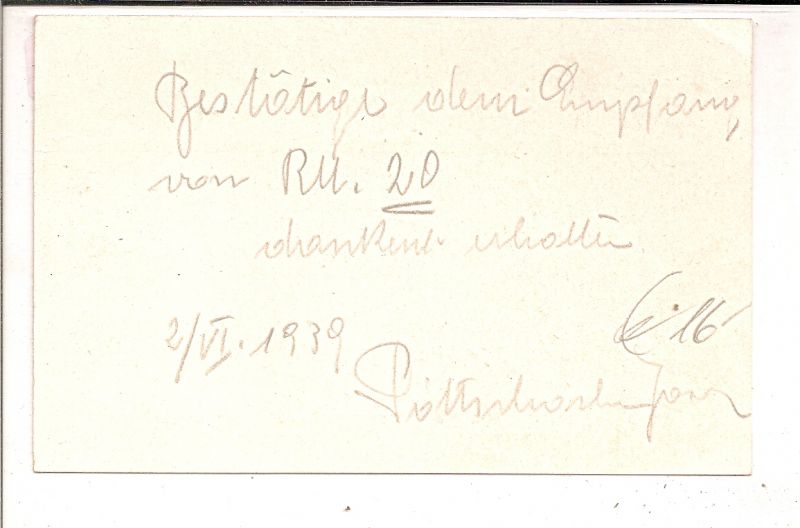 Bestätige dem Empfang
von RM. 20
dankent erhalten
2/VI. 1939